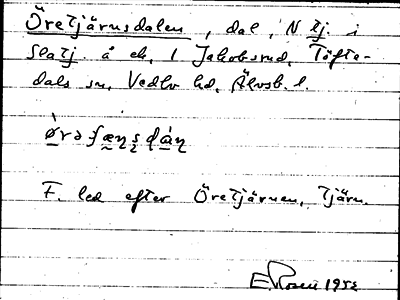 Öretjärnsdalen, dal, N tj. i
Slätj. å ek. 1 Jakobsrud, Töfte-
dals sn, Vedbo hd, Älvsb. l.
F. led efter Öretjärnen, tjärn.
E. Rosén 1952